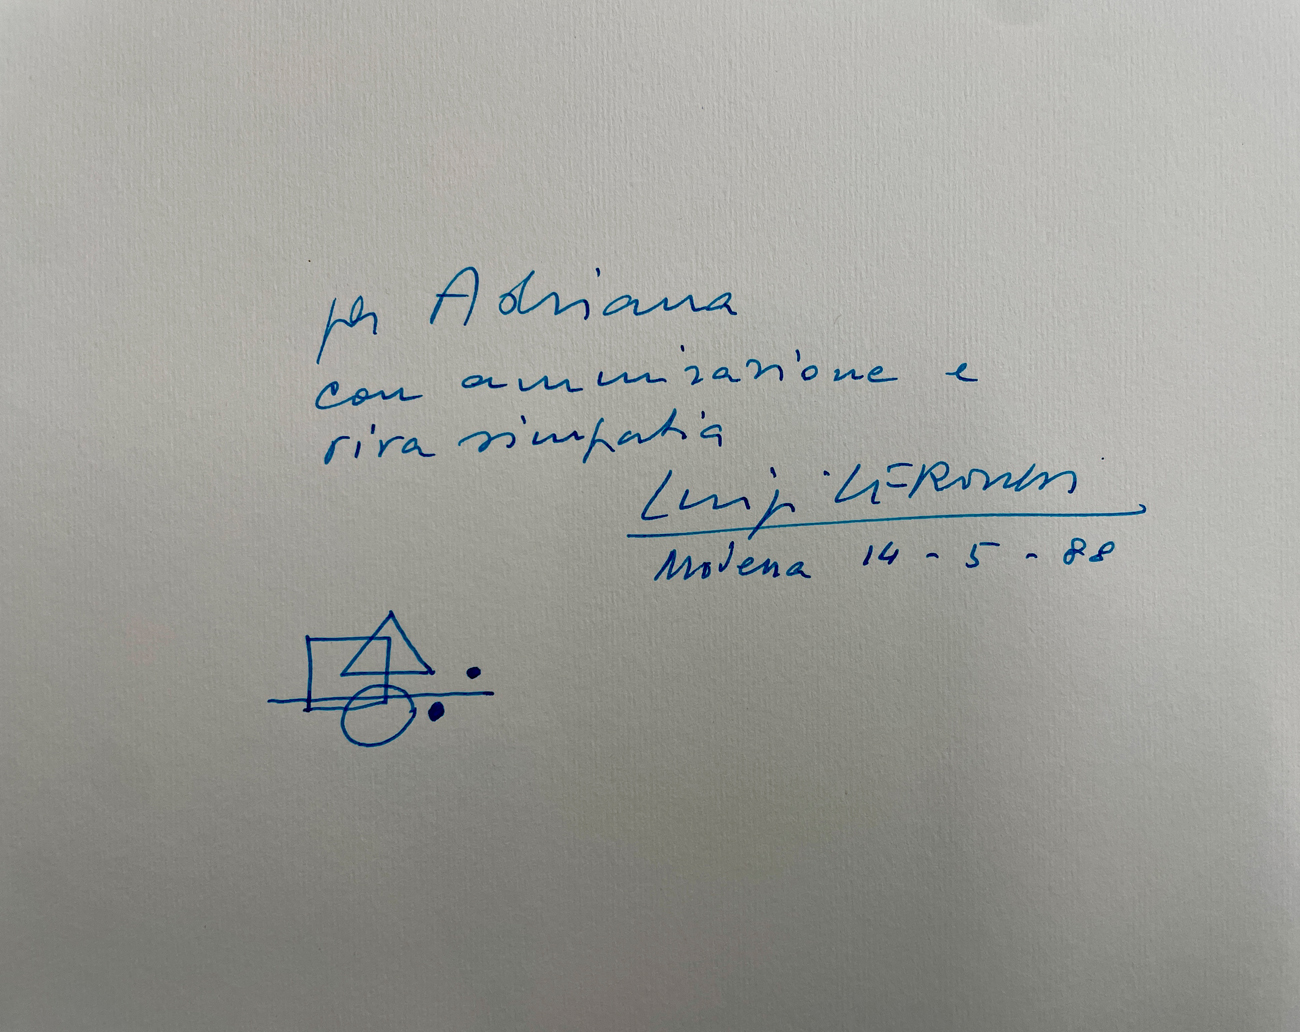 per Adriana
con ammirazione e
viva simpatia
Luigi
Modena 14 - 5 - 88